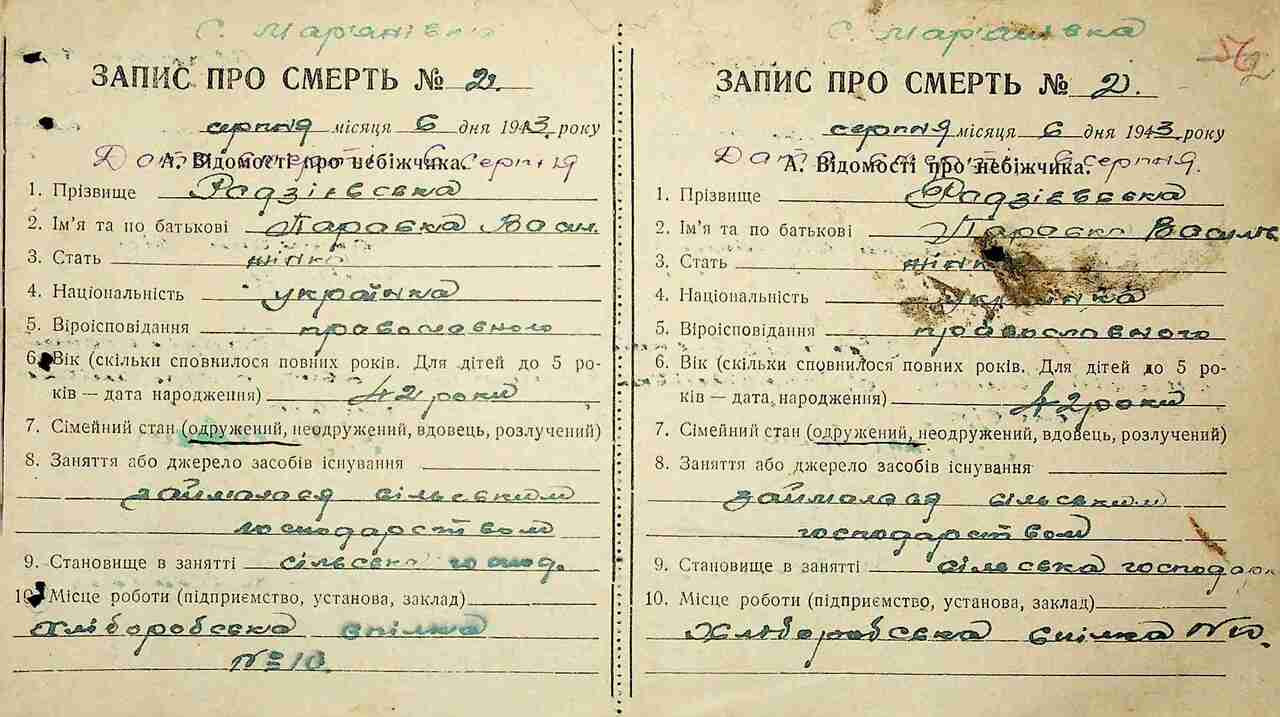 С. Мар'янівка
ЗАПИС ПРО СМЕРТЬ № 2.
серпня місяця 6 дня 1943 року
Дата смерті 6 серпня
А. Відомості про небіжчика.
1. Прізвище Радзієвська
2. Ім'я та по батькові Параска Васил.
3. Стать жінка
4. Національність українка
5. Віроісповідання православного
6. Вік (скільки сповнилося повних років. Для дітей до 5 ро-
ків — дата народження) 42 роки
7. Сімейний стан (одружений, неодружений, вдовець, розлучений)
8. Заняття або джерело засобів існування
займалася сільським
господарством
9. Становище в занятті сільська господ.
10. Місце роботи (підприємство, установа, заклад)
Хліборобська спілка
№ 10.
С. Мар'янівка
56
ЗАПИС ПРО СМЕРТЬ № 2.
серпня місяця 6 дня 1943 року
Дата смерті 6 серпня.
А. Відомості про небіжчика.
1. Прізвище Радзієвська
2. Ім'я та по батькові Параска Василів
3. Стать жінка
4. Національність українка
5. Віроісповідання православного
6. Вік (скільки сповнилося повних років. Для дітей до 5 ро-
ків — дата народження) 42 роки
7. Сімейний стан (одружений, неодружений, вдовець, розлучений)
8. Заняття або джерело засобів існування
займалася сільським
господарством
9. Становище в занятті сільська господар
10. Місце роботи (підприємство, установа, заклад)
Хліборобська спілка № 10.